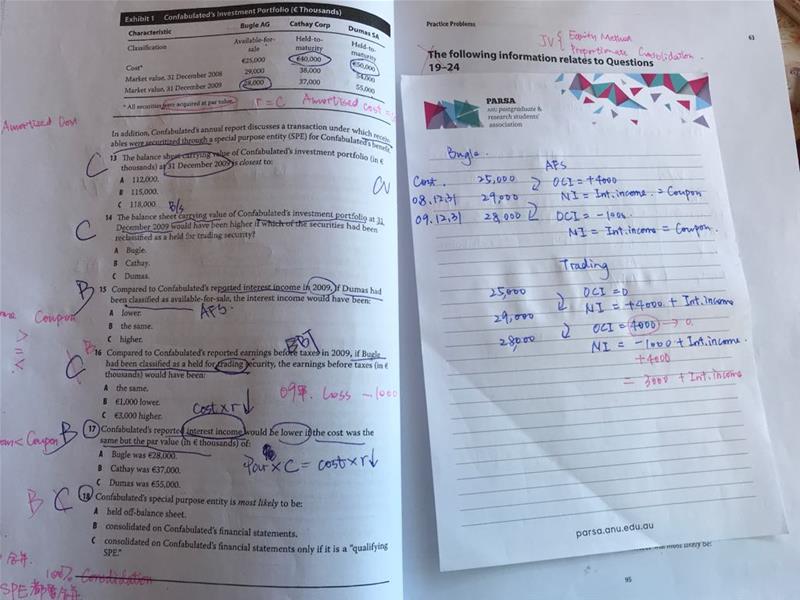 Exhibit 1 Confabulated's Investment Portfolio (€ Thousands)
Characteristic Bugle AG Cathay Corp Dumas SA
Classification Available-for-sale Held-to-maturity Held-to-maturity
Cost* €25,000 €40,000 €50,000
Market value, 31 December 2008 29,000 38,000 54,000
Market value, 31 December 2009 28,000 37,000 55,000
* All securities were acquired at par value.
r = C Amortised cost =
Amortized Cost
In addition, Confabulated's annual report discusses a transaction under which receiv-
ables were securitized through a special purpose entity (SPE) for Confabulated's benefit.
C
13 The balance sheet carrying value of Confabulated's investment portfolio (in €
thousands) at 31 December 2009 is closest to:
A 112,000.
B 115,000.
C 118,000.
CV
B/s
C
14 The balance sheet carrying value of Confabulated's investment portfolio at 31
December 2009 would have been higher if which of the securities had been
reclassified as a held for trading security?
A Bugle.
B Cathay.
C Dumas.
B
15 Compared to Confabulated's reported interest income in 2009, if Dumas had
been classified as available-for-sale, the interest income would have been:
A lower.
AFS.
B the same.
C higher.
Coupon
>
=
<
B
EBT
C
16 Compared to Confabulated's reported earnings before taxes in 2009, if Bugle
had been classified as a held for trading security, the earnings before taxes (in €
thousands) would have been:
A the same.
B €1,000 lower.
C €3,000 higher.
09年. Loss -1000
cost×r↓
< Coupon B
17 Confabulated's reported interest income would be lower if the cost was the
same but the par value (in € thousands) of:
A Bugle was €28,000.
B Cathay was €37,000.
C Dumas was €55,000.
Par × C = cost×r↓
B C
18 Confabulated's special purpose entity is most likely to be:
A held off-balance sheet.
B consolidated on Confabulated's financial statements.
C consolidated on Confabulated's financial statements only if it is a "qualifying
SPE."
100% Consolidation
SPE
Practice Problems 63
JV { Equity Method
Proportionate Consolidation.
The following information relates to Questions
19–24
PARSA
ANU postgraduate &
research students'
association
Bugle.
AFS
Cost. 25,000 OCI = +4000
08.12.31 29,000 NI = Int.income = Coupon
09.12.31 28,000 OCI = -1000
NI = Int.income = Coupon.
Trading
25,000 OCI = 0
29,000 NI = +4000 + Int.income
28,000 OCI = 4000 → 0.
NI = -1000 + Int.income
+4000
= 3000 + Int.income
parsa.anu.edu.au
most likely be:
95